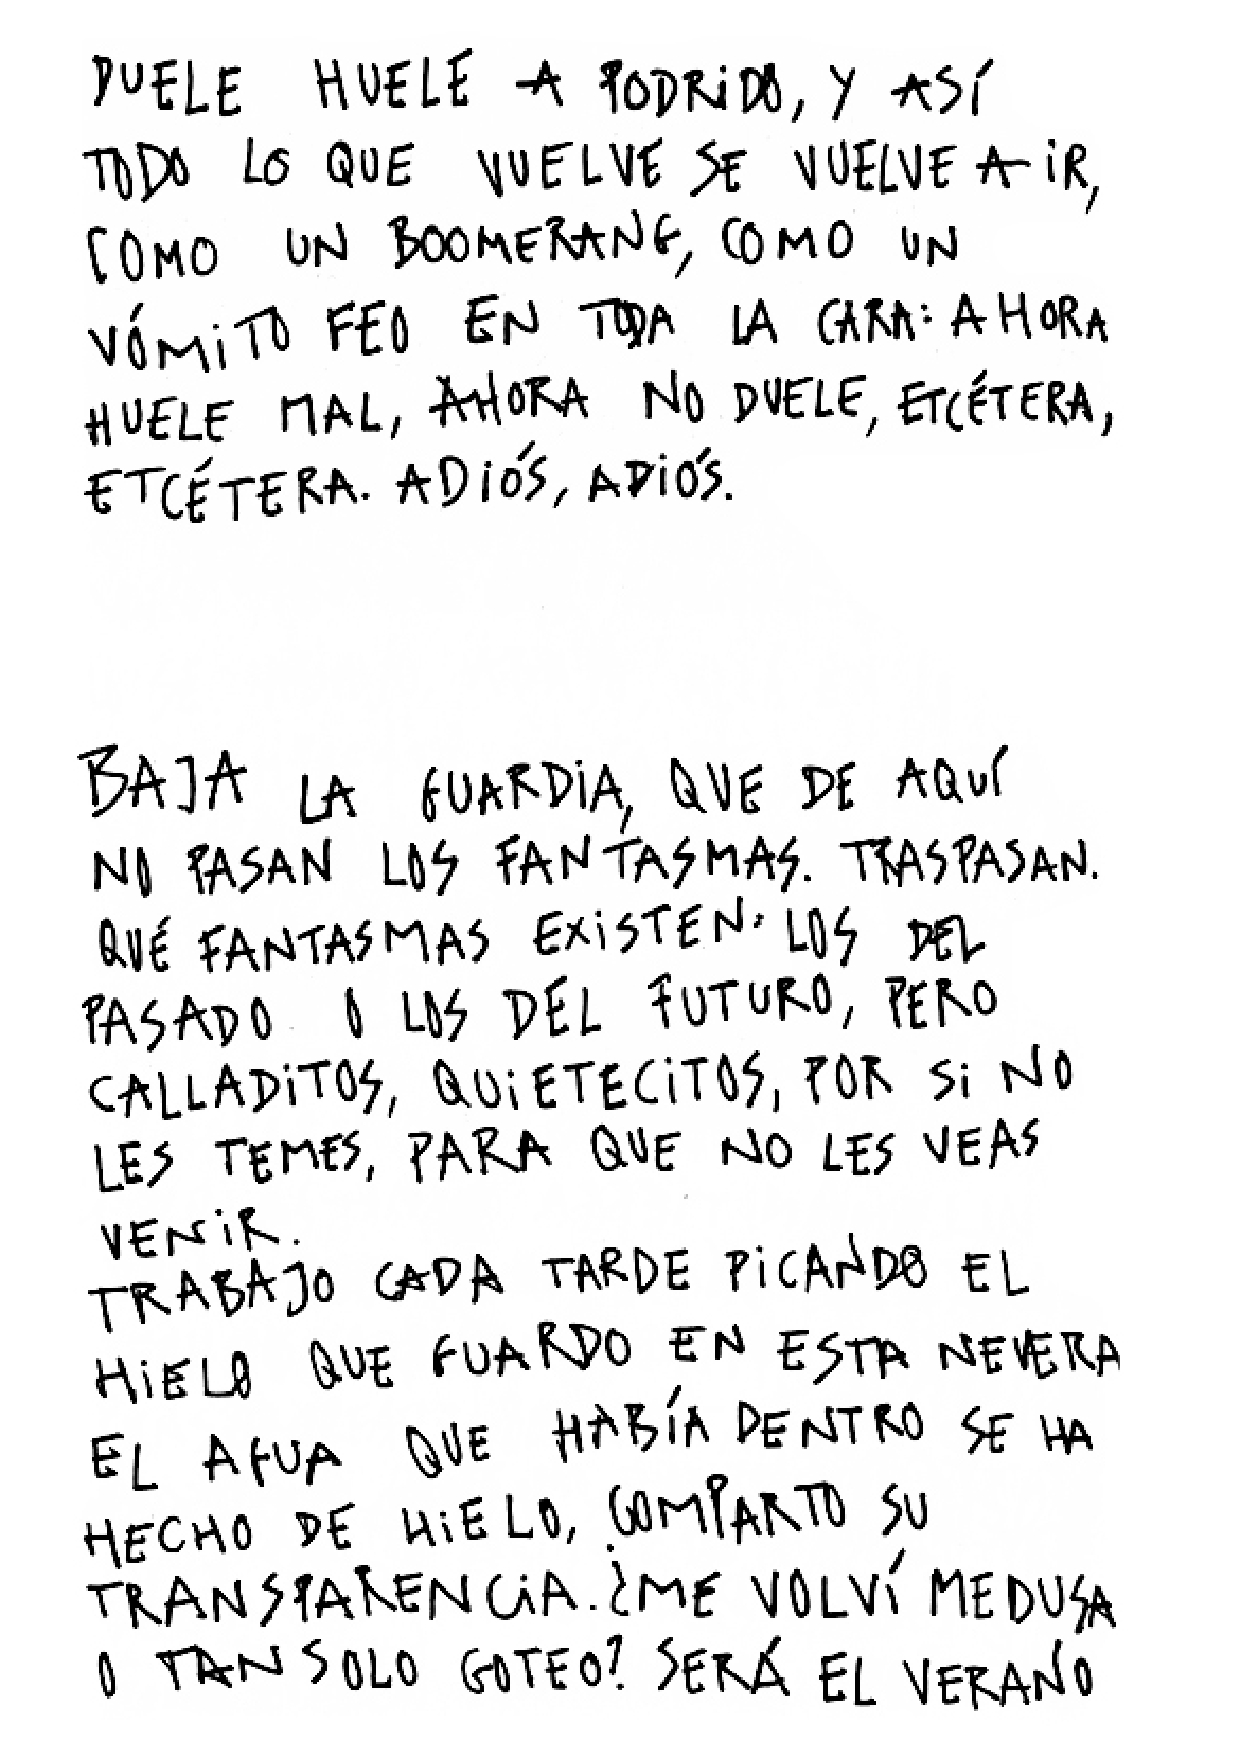 DUELE HUELE A PODRIDO, Y ASÍ
TODO LO QUE VUELVE SE VUELVE A IR,
COMO UN BOOMERANG, COMO UN
VÓMITO FEO EN TODA LA CARA: AHORA
HUELE MAL, AHORA NO DUELE, ETCÉTERA,
ETCÉTERA. ADIÓS, ADIÓS.
BAJA LA GUARDIA, QUE DE AQUÍ
NO PASAN LOS FANTASMAS. TRASPASAN.
QUÉ FANTASMAS EXISTEN: LOS DEL
PASADO O LOS DEL FUTURO, PERO
CALLADITOS, QUIETECITOS, POR SI NO
LES TEMES, PARA QUE NO LES VEAS
VENIR.
TRABAJO CADA TARDE PICANDO EL
HIELO QUE GUARDO EN ESTA NEVERA
EL AGUA QUE HABÍA DENTRO SE HA
HECHO DE HIELO, COMPARTO SU
TRANSPARENCIA. ¿ME VOLVÍ MEDUSA
O TAN SOLO GOTEO? SERÁ EL VERANO